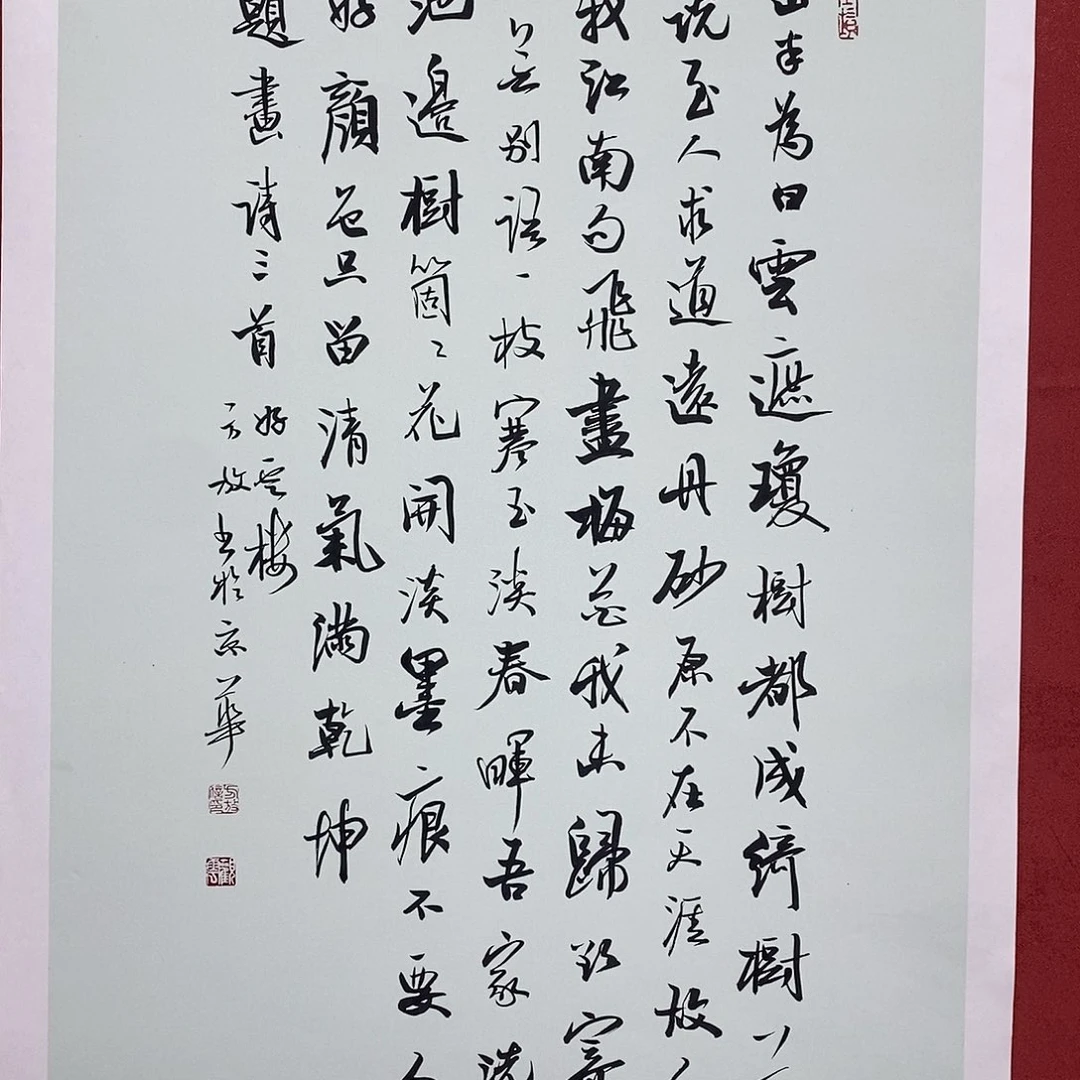 山本為白雲遮瓊樹都成綺樹
說至人求道遠丹砂原不在天涯故人
我江南句飛盡梅花我未歸欲寄
無別語一枝寒玉淡春暉吾家洗
池邊樹箇〻花開淡墨痕不要人
好顏色只留清氣滿乾坤
題畫詩三首
好雲樓
方放書於京華